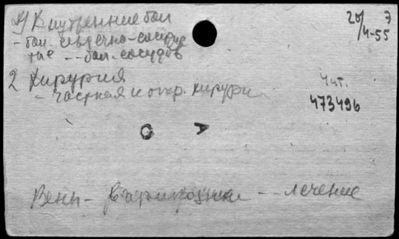 1) Внутренние бол
20/4-55 7
- бол. сердечно-сосудис
тые -- бол. сосудов
2 Хирургия
- частная и опер. хирурги
Чит.
473496
О А
Вены - варикозные -- лечение